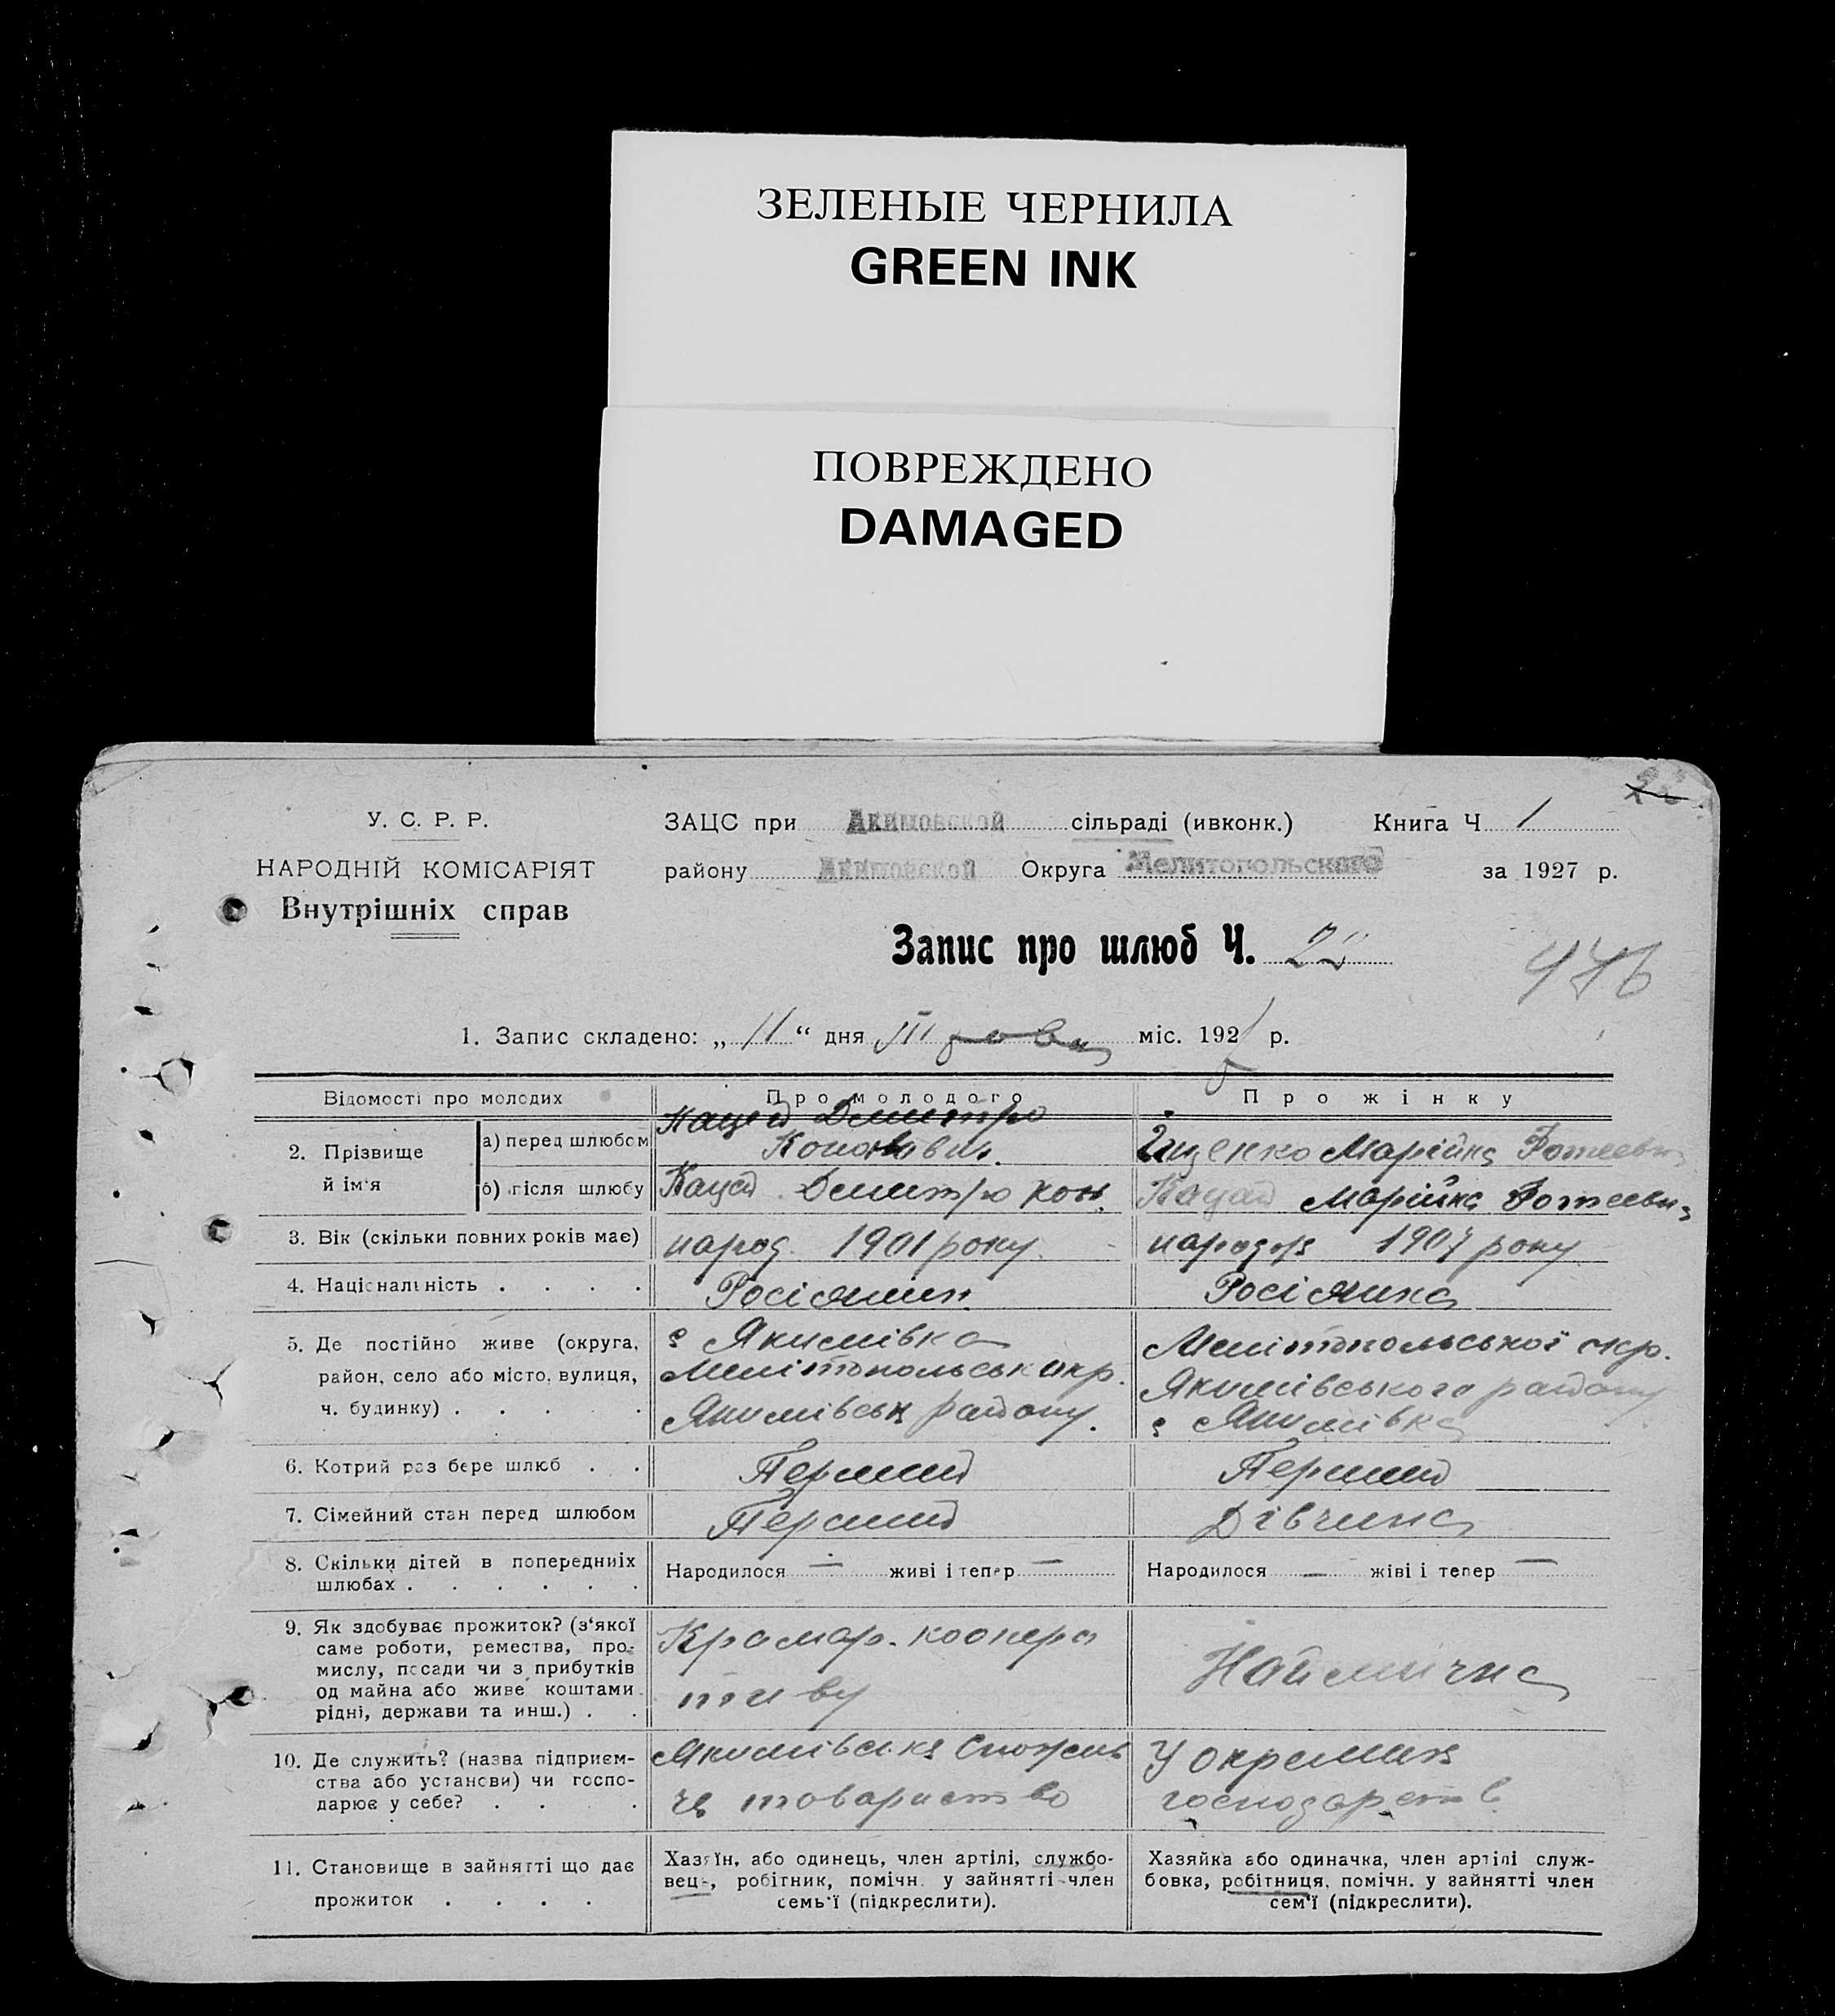 ЗЕЛЕНЫЕ ЧЕРНИЛА
GREEN INK
ПОВРЕЖДЕНО
DAMAGED
У. С. Р. Р.
НАРОДНІЙ КОМІСАРІЯТ
Внутрішніх справ
ЗАЦС при Акимовской сільраді (ивконк.) Книга Ч 1
району Акимовской Округа Мелитопольского за 1927 р.
Запис про шлюб Ч. 22
446
1. Запис складено: „ 11 “ дня III міс. 192 р.
Відомості про молодих Про молодого Про жінку
2. Прізвище й ім'я
а) перед шлюбом
Кацай Демитро
Кононович.
Іщенко Марійка Фотеевна
б) після шлюбу Кацай Демитро Кон. Кацай Марійка Фотеевна
3. Вік (скільки повних років має) народ. 1901 року. 1907 року
4. Національність . . . . Росіянин Росіянка
5. Де постійно живе (округа,
район, село або місто, вулиця,
ч. будинку) . . . . .
с Якимівка
Мелітопольськ окр.
Якимівськ району.
Мелітопольської окр.
Якимівського району
с Якимівка
6. Котрий раз бере шлюб . . Перший Перший
7. Сімейний стан перед шлюбом Перший Дівчина
8. Скільки дітей в попередниіх
шлюбах . . . . . .
Народилося — живі і тепер —
Народилося — жіві і тепер —
9. Як здобуває прожиток? (з'якої
саме роботи, ремества, про-
мислу, посади чи з прибутків
од майна або живе коштами
рідні, держави та инш.) . .
Крамар. коопера
тиву
Наймичка
10. Де служить? (назва підприєм-
ства або установи) чи госпо-
дарює у себе? . . . .
Якимівське Спожив
че товариство
У окремих
господарств
11. Становище в зайнятті що дає
прожиток . . . .
Хазяїн, або одинець, член артілі, службо-
вець, робітник, помічн. у зайнятті член
семь'ї (підкреслити).
Хазяйка або одиначка, член артілі служ-
бовка, робітниця, помічн. у зайнятті член
сем'ї (підкреслити).